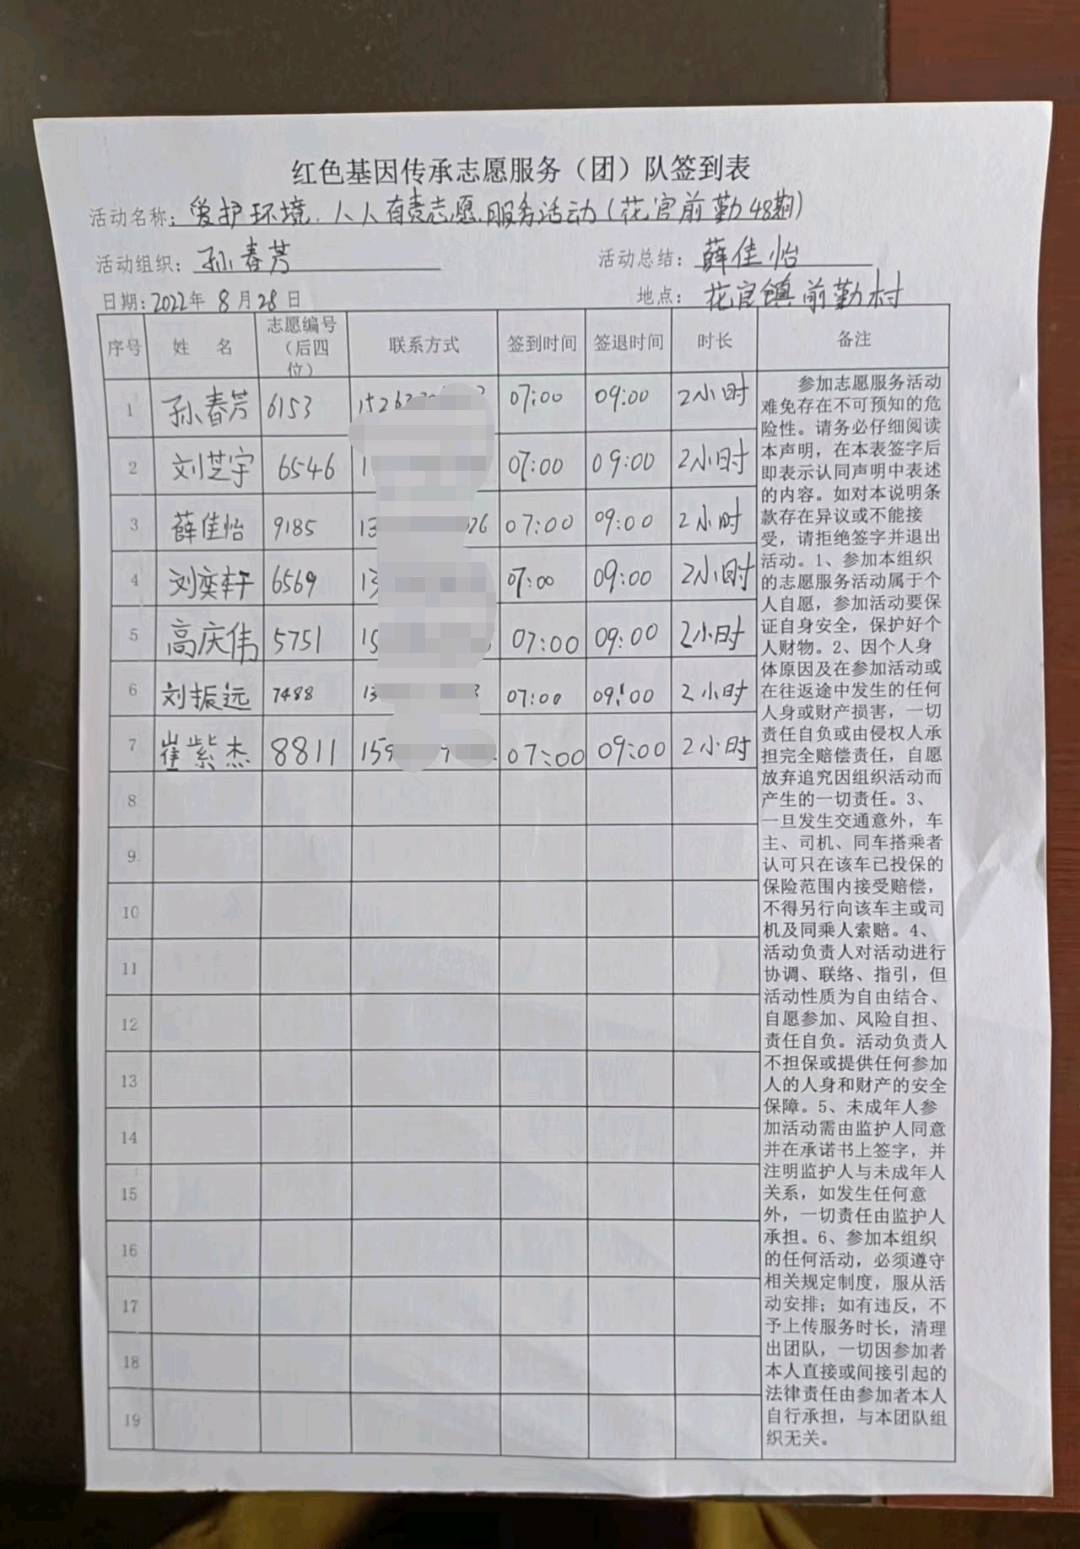 红色基因传承志愿服务（团）队签到表
活动名称：爱护环境，人人有责志愿服务活动（花官前勤48期）
活动组织：孙春芳 活动总结：薛佳怡
日期：2022年8月28日 地点：花官镇前勤村
序号 姓 名 志愿编号（后四位） 联系方式 签到时间 签退时间 时长 备注
1 孙春芳 6153 15263 07:00 09:00 2小时
2 刘芝宇 6546 1 07:00 09:00 2小时
3 薛佳怡 9185 13 26 07:00 09:00 2小时
4 刘奕轩 6569 13 07:00 09:00 2小时
5 高庆伟 5751 15 07:00 09:00 2小时
6 刘振远 7488 13 3 07:00 09:00 2小时
7 崔紫杰 8811 159 07:00 09:00 2小时
8
9
10
11
12
13
14
15
16
17
18
19
参加志愿服务活动
难免存在不可预知的危
险性。请务必仔细阅读
本声明，在本表签字后
即表示认同声明中表述
的内容。如对本说明条
款存在异议或不能接
受，请拒绝签字并退出
活动。1、参加本组织
的志愿服务活动属于个
人自愿，参加活动要保
证自身安全，保护好个
人财物。2、因个人身
体原因及在参加活动或
在往返途中发生的任何
人身或财产损害，一切
责任自负或由侵权人承
担完全赔偿责任，自愿
放弃追究因组织活动而
产生的一切责任。3、
一旦发生交通意外，车
主、司机、同车搭乘者
认可只在该车已投保的
保险范围内接受赔偿，
不得另行向该车主或司
机及同乘人索赔。4、
活动负责人对活动进行
协调、联络、指引，但
活动性质为自由结合、
自愿参加、风险自担、
责任自负。活动负责人
不担保或提供任何参加
人的人身和财产的安全
保障。5、未成年人参
加活动需由监护人同意
并在承诺书上签字，并
注明监护人与未成年人
关系，如发生任何意
外，一切责任由监护人
承担。6、参加本组织
的任何活动，必须遵守
相关规定制度，服从活
动安排；如有违反，不
予上传服务时长，清理
出团队，一切因参加者
本人直接或间接引起的
法律责任由参加者本人
自行承担，与本团队组
织无关。